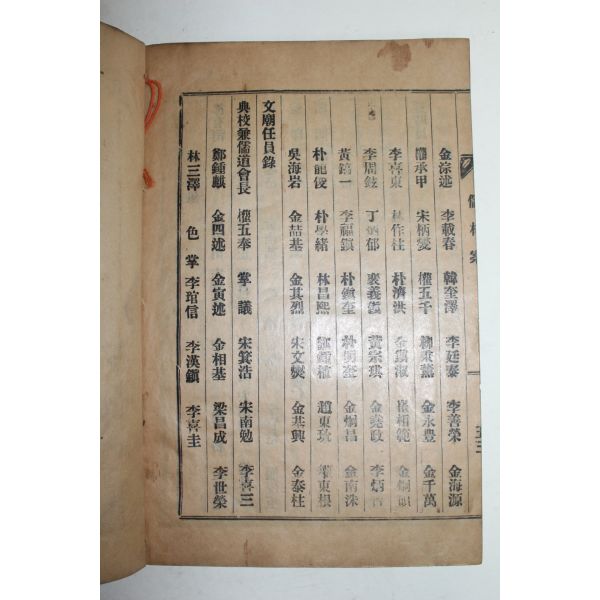 金淙述 李載春 韓奎澤 李廷泰 李善榮 金海源
權承甲 宋柄燮 權五千 柳 薰 金永豊 金千萬
李喜東 林作柱 朴濟洪 金鎭淑 相範 金炯
李周鉉 丁炳郁 裵義 黃宗琪 金 政 李炳
黃鎬一 李福鎭 朴鎭奎 朴 奎 金炯昌 金南洙
朴龍俊 朴學緖 林昌熙 鄭鍾 趙東 東根
吳海岩 金喆基 金其烈 宋文燮 金基興 金泰柱
文廟任員錄
典校兼儒道會長 權五奉 掌議 宋箕浩 宋南勉 李喜三
鄭鍾麒 金四述 金寅述 金相基 梁昌成 李世榮
林三澤 色掌 李琯信 李漢鎭 李喜圭